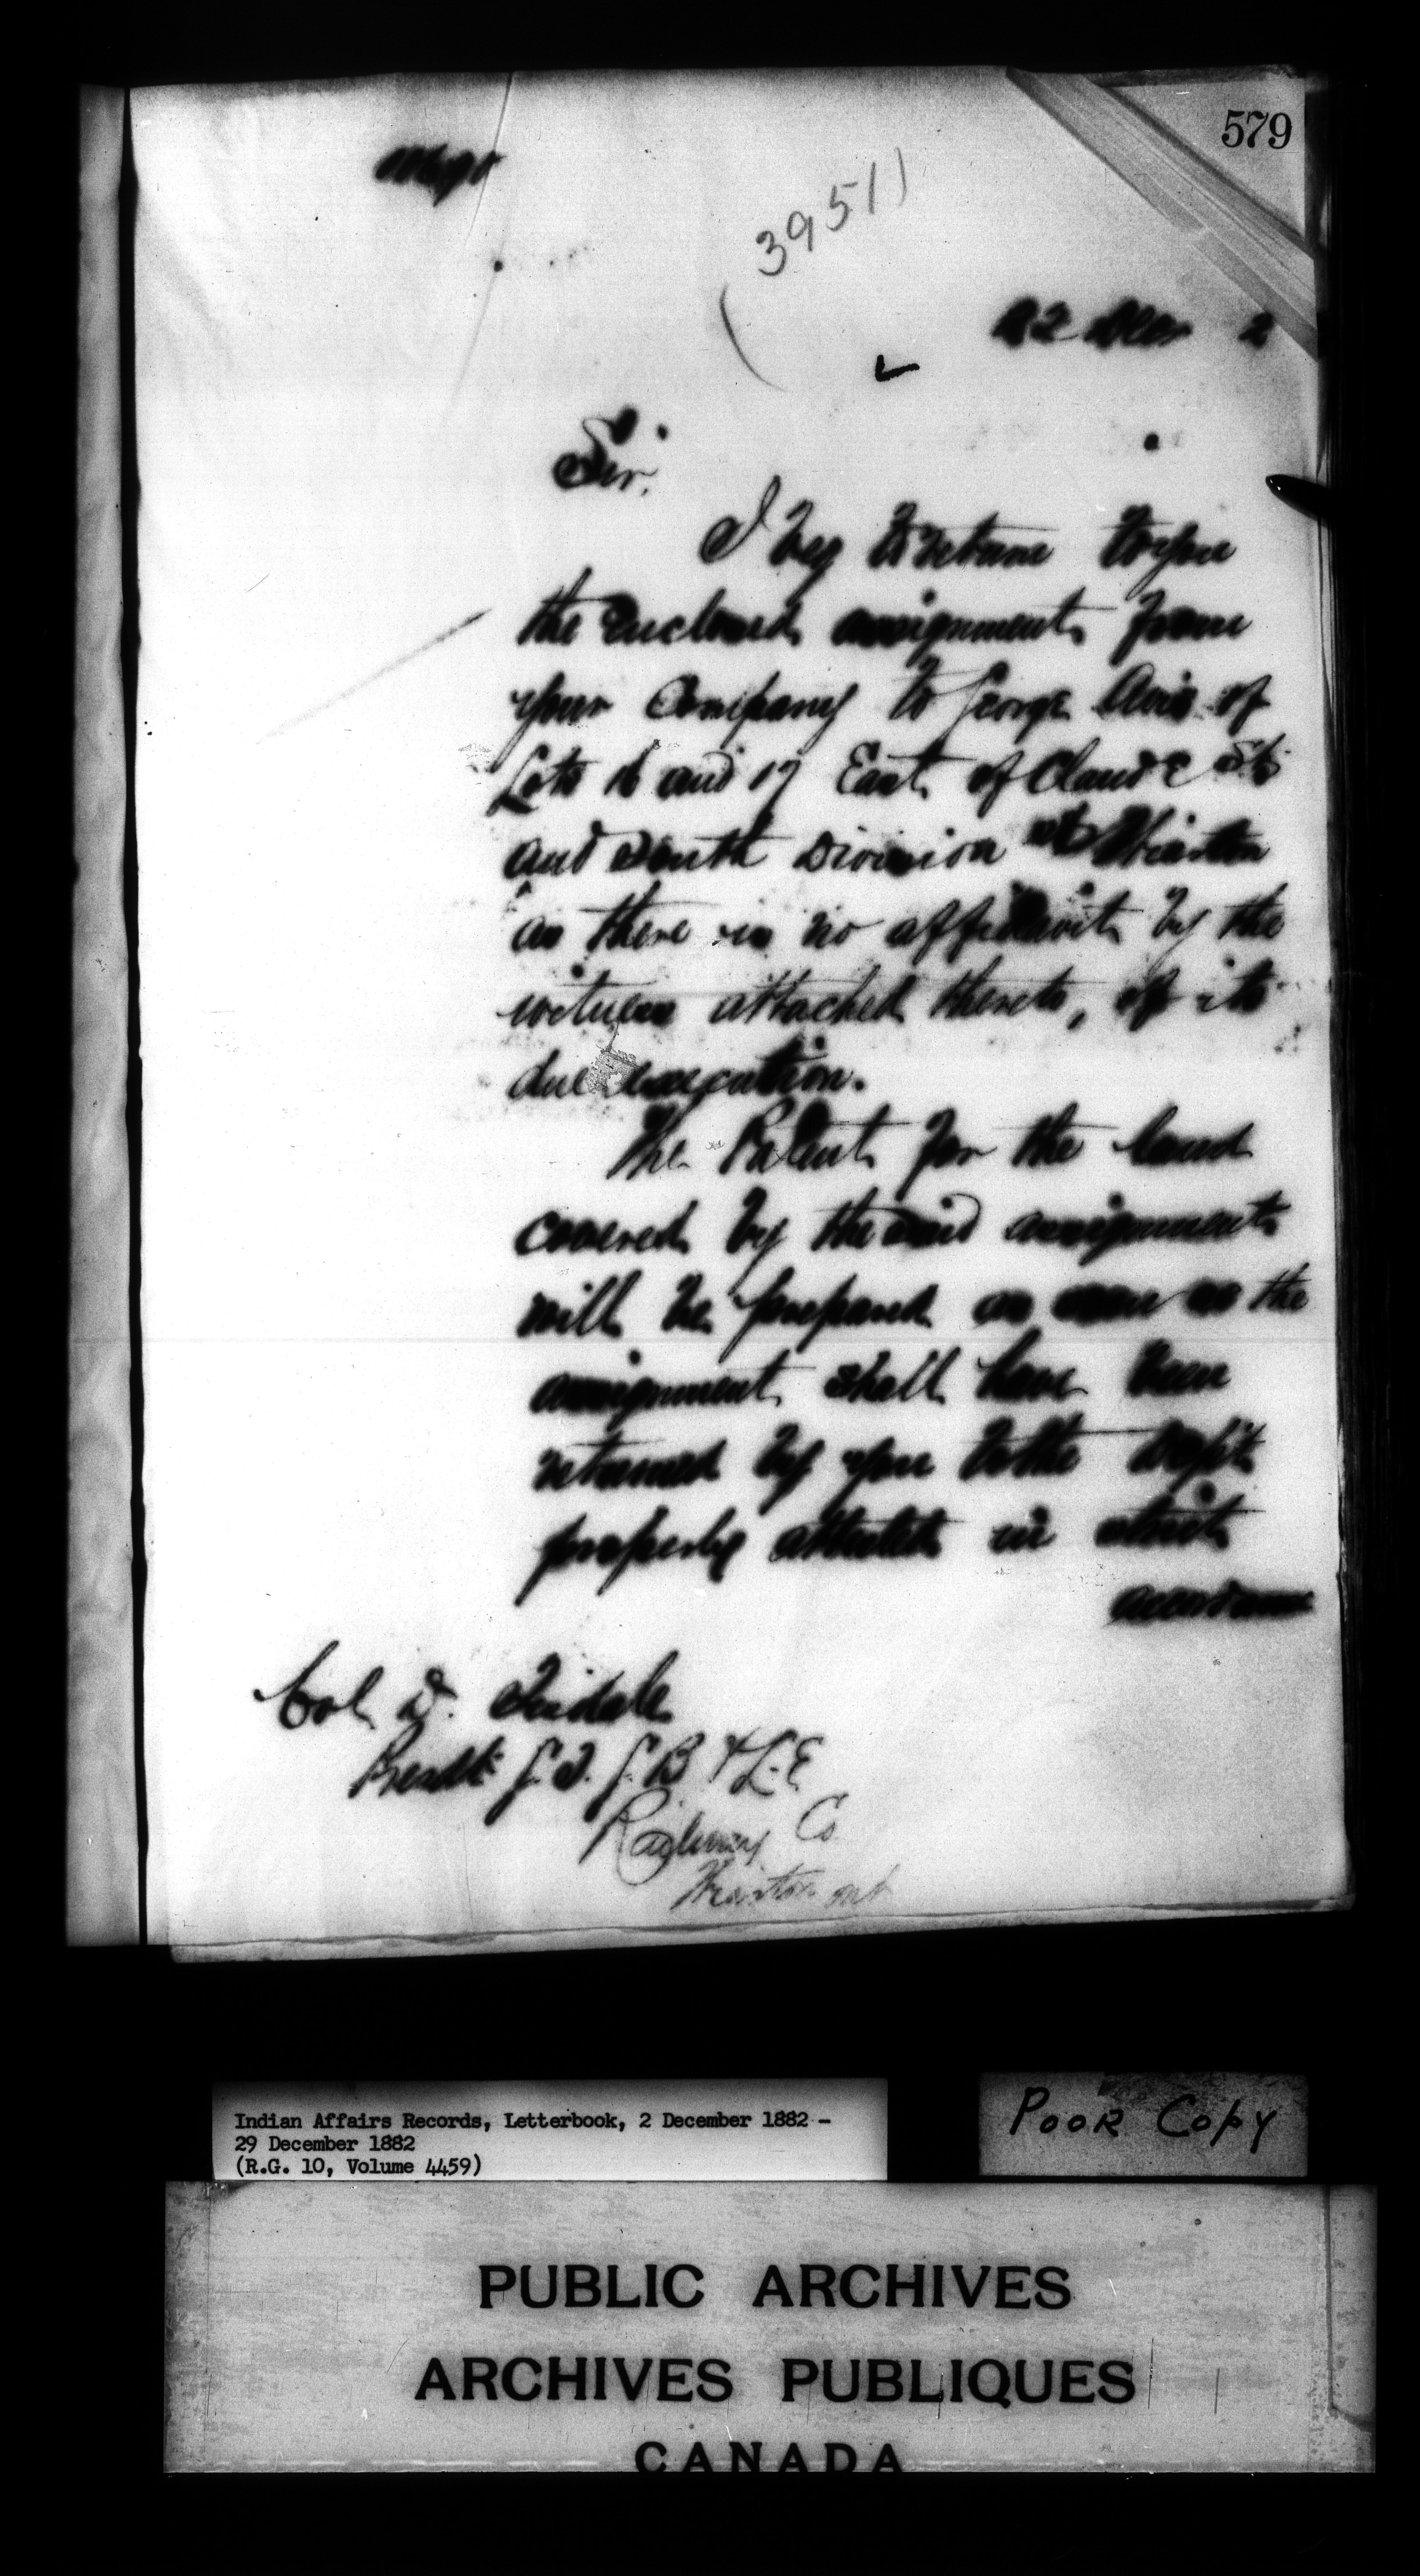 579
(3951)
22 Decr 2
Sir,
I beg to return to you
the enclosed assignment from
your Company to George of
Lots 16 and 17 East of Claude St
and South Division Wiarton
as there is no affidavit by the
witness attached thereto, of its
due execution.
The Patent for the land
covered by the said assignment
will be prepared as soon as the
assignment shall have been
returned by you to the Dept
properly attested in strict
accordance
Col. D. Tisdale
Presdt G.B & L.E
Railway Co
Wiarton Ont
Indian Affairs Records, Letterbook, 2 December 1882 -
29 December 1882
(R.G. 10, Volume 4459)
POOR COPY
PUBLIC ARCHIVES
ARCHIVES PUBLIQUES
CANADA